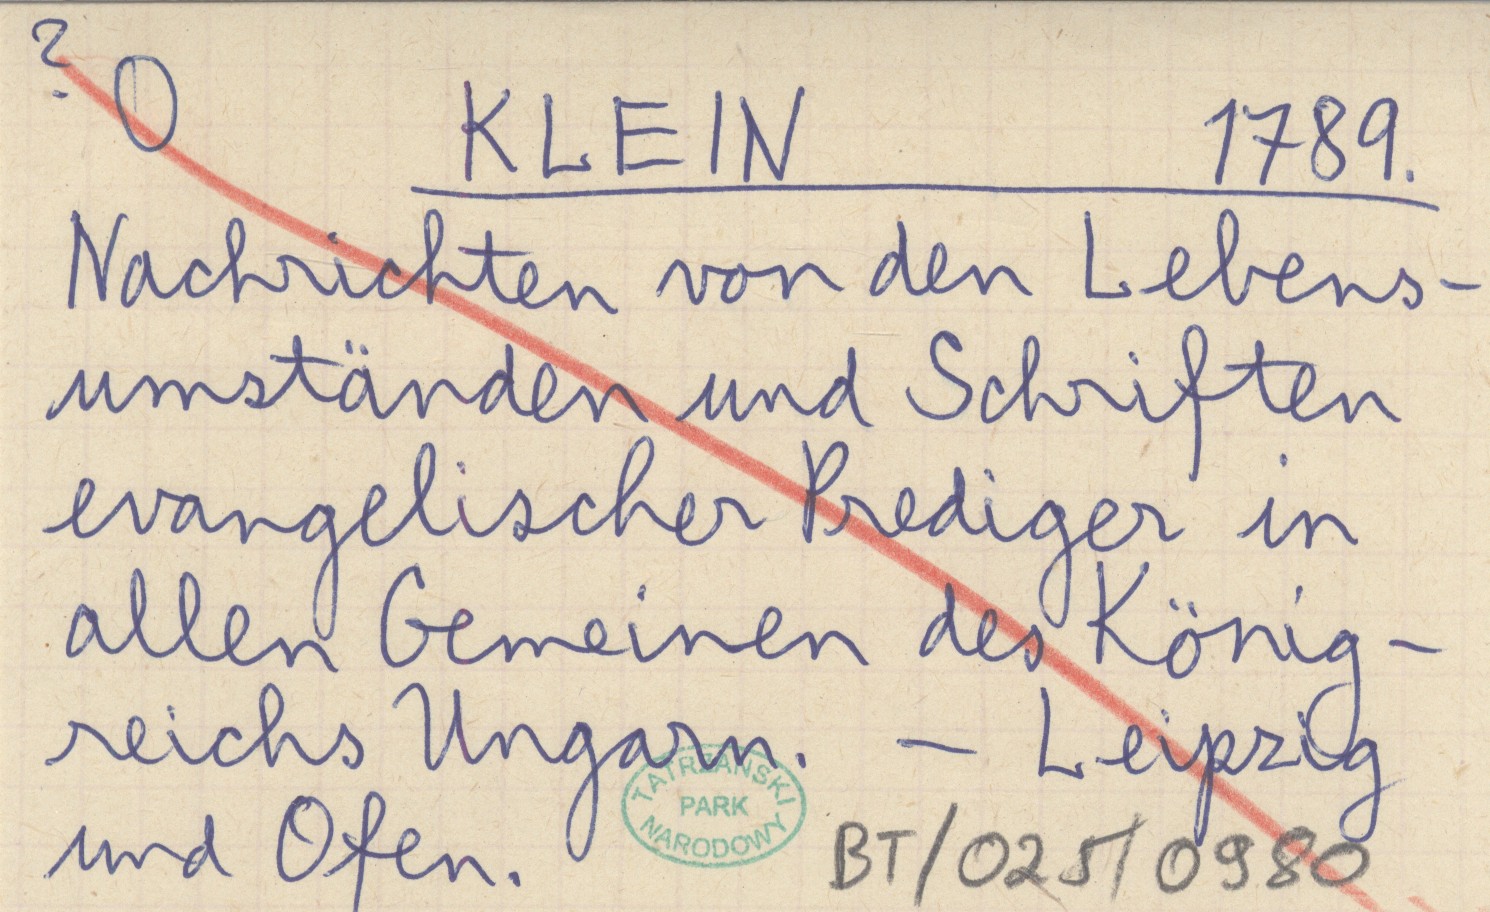 ?
O
KLEIN 1789.
Nachrichten von den Lebens-
umständen und Schriften
evangelischer Prediger in
allen Gemeinen des König-
reichs Ungarn. — Leipzig
und Ofen.
TATRZAŃSKI
PARK
NARODOWY
BT/025/0980